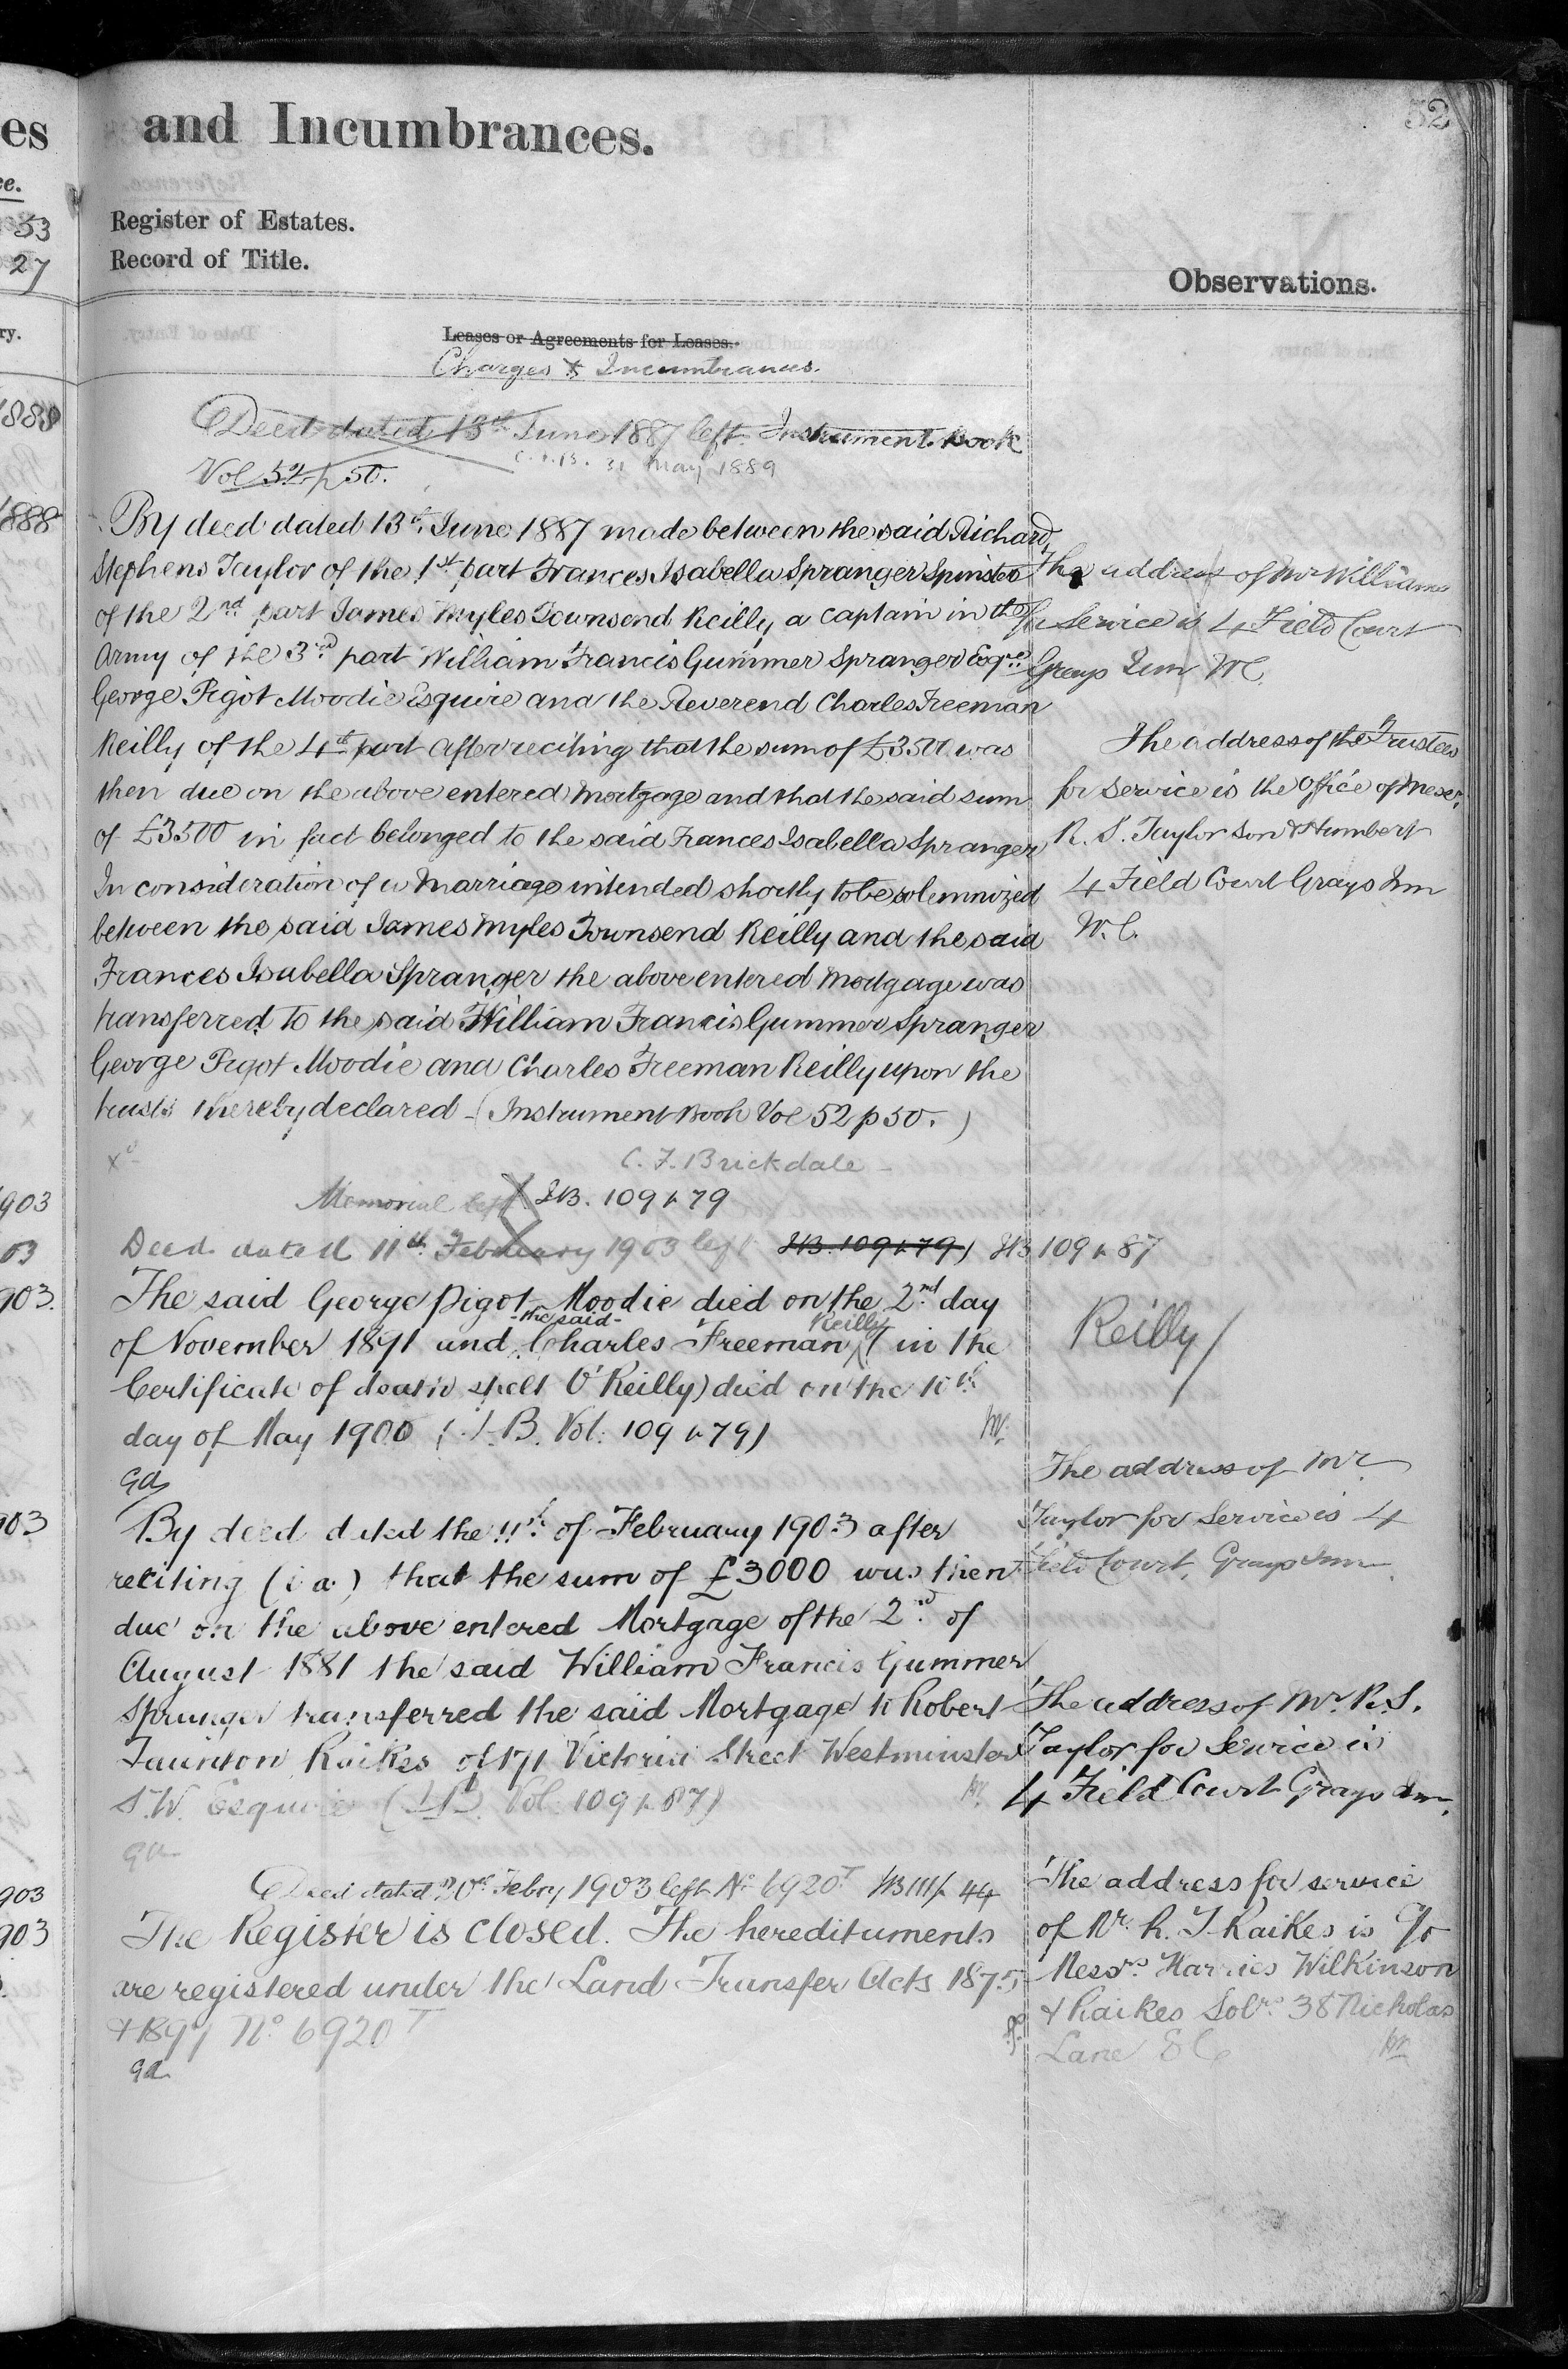 es
ce.
53
27
ry.
1889
1888
1903
03
903.
903
903
903
and Incumbrances.
52
Register of Estates.
Record of Title.
Observations.
Leases or Agreements for Leases.
Charges & Incumbrances.
Deed dated 13th June 1887 left Instrument Book
Vol 52 p 50.
31 May 1889
By deed dated 13th June 1887 made between the said Richard
Stephens Taylor of the 1st part Frances Isabella Spranger Spinster
of the 2nd part James Myles Townsend Reilly a Captain in the
Army of the 3rd part William Francis Gummer Spranger Esqre
George Pigot Moodie Esquire and the Reverend Charles Freeman
Reilly of the 4th part after reciting that the sum of £3500 was
then due on the above entered Mortgage and that the said sum
of £3500 in fact belonged to the said Frances Isabella Spranger
In consideration of a Marriage intended shortly to be solemnized
between the said James Myles Townsend Reilly and the said
Frances Isabella Spranger the above entered Mortgage was
transferred to the said William Francis Gummer Spranger
George Pigot Moodie and Charles Freeman Reilly upon the
trusts thereby declared - (Instrument Book Vol 52 p 50.)
C. F. Brickdale
Memorial left IB. 109 p 79
Deed dated 11th February 1903 left IB. 109 p 79) IB 109 p 87
The said George Pigot Moodie died on the 2nd day
of November 1891 and -the said- Charles Freeman Reilly (in the
Certificate of death spelt O'Reilly) died on the 10th
day of May 1900 (I.B. Vol. 109 p 79)
ga
By deed dated the 11th of February 1903 after
reciting (i a) that the sum of £3000 was then
due on the above entered Mortgage of the 2nd of
August 1881 the said William Francis Gummer
Spranger transferred the said Mortgage to Robert
Taunton Raikes of 171 Victoria Street Westminster
S.W. Esquire (I.B. Vol. 109 p 87)
ga
Deed dated 20th Febry 1903 left No 6920T IB 111 p 44
The Register is closed. The hereditaments
are registered under the Land Transfer Acts 1875
& 1897 No 6920T
ga
The address of Mr Williams
for Service is 4 Field Court
Grays Inn WC.
The address of the Trustees
for service is the Office of Messrs
R. S. Taylor Son & Humbert
4 Field Court Grays Inn
W.C.
Reilly/
The address of Mr
Taylor for Service is 4
Field Court, Grays Inn
The address of Mr. R. S.
Taylor for Service is
4 Field Court Grays Inn.
The address for service
of Mr. R. T. Raikes is c/o
Messrs Harries Wilkinson
& Raikes Solrs 38 Nicholas
Lane E C